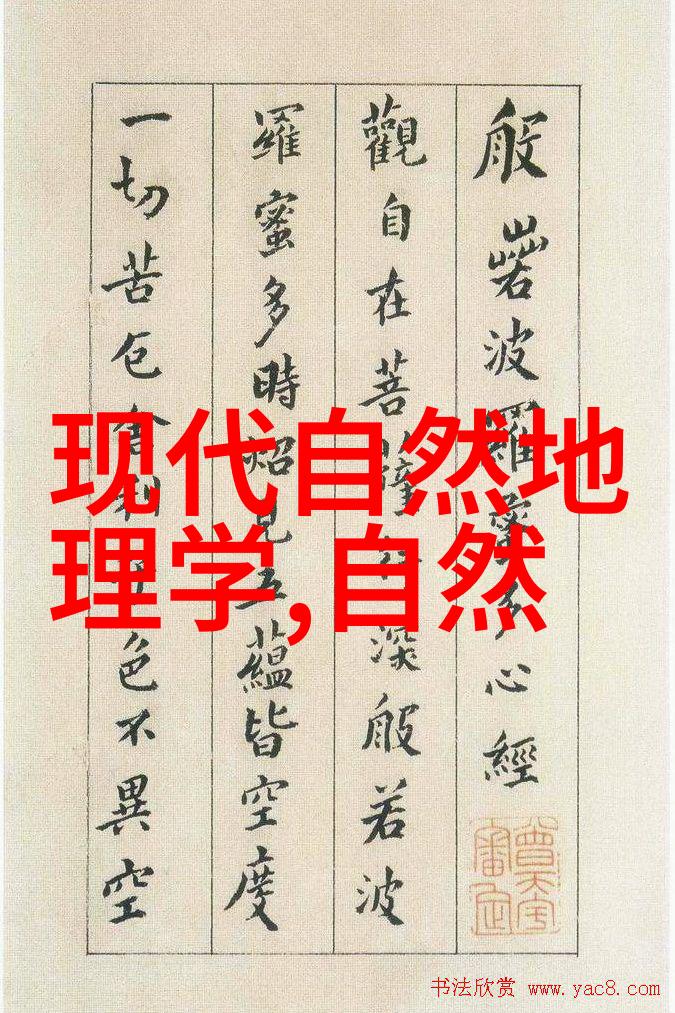 般若波羅蜜多心經
觀自在菩薩行深般若波
羅蜜多時照見五蘊皆空度
一切苦厄舍利子色不異空
现代自然地
理学,自然
书法欣赏 www.yac8.com